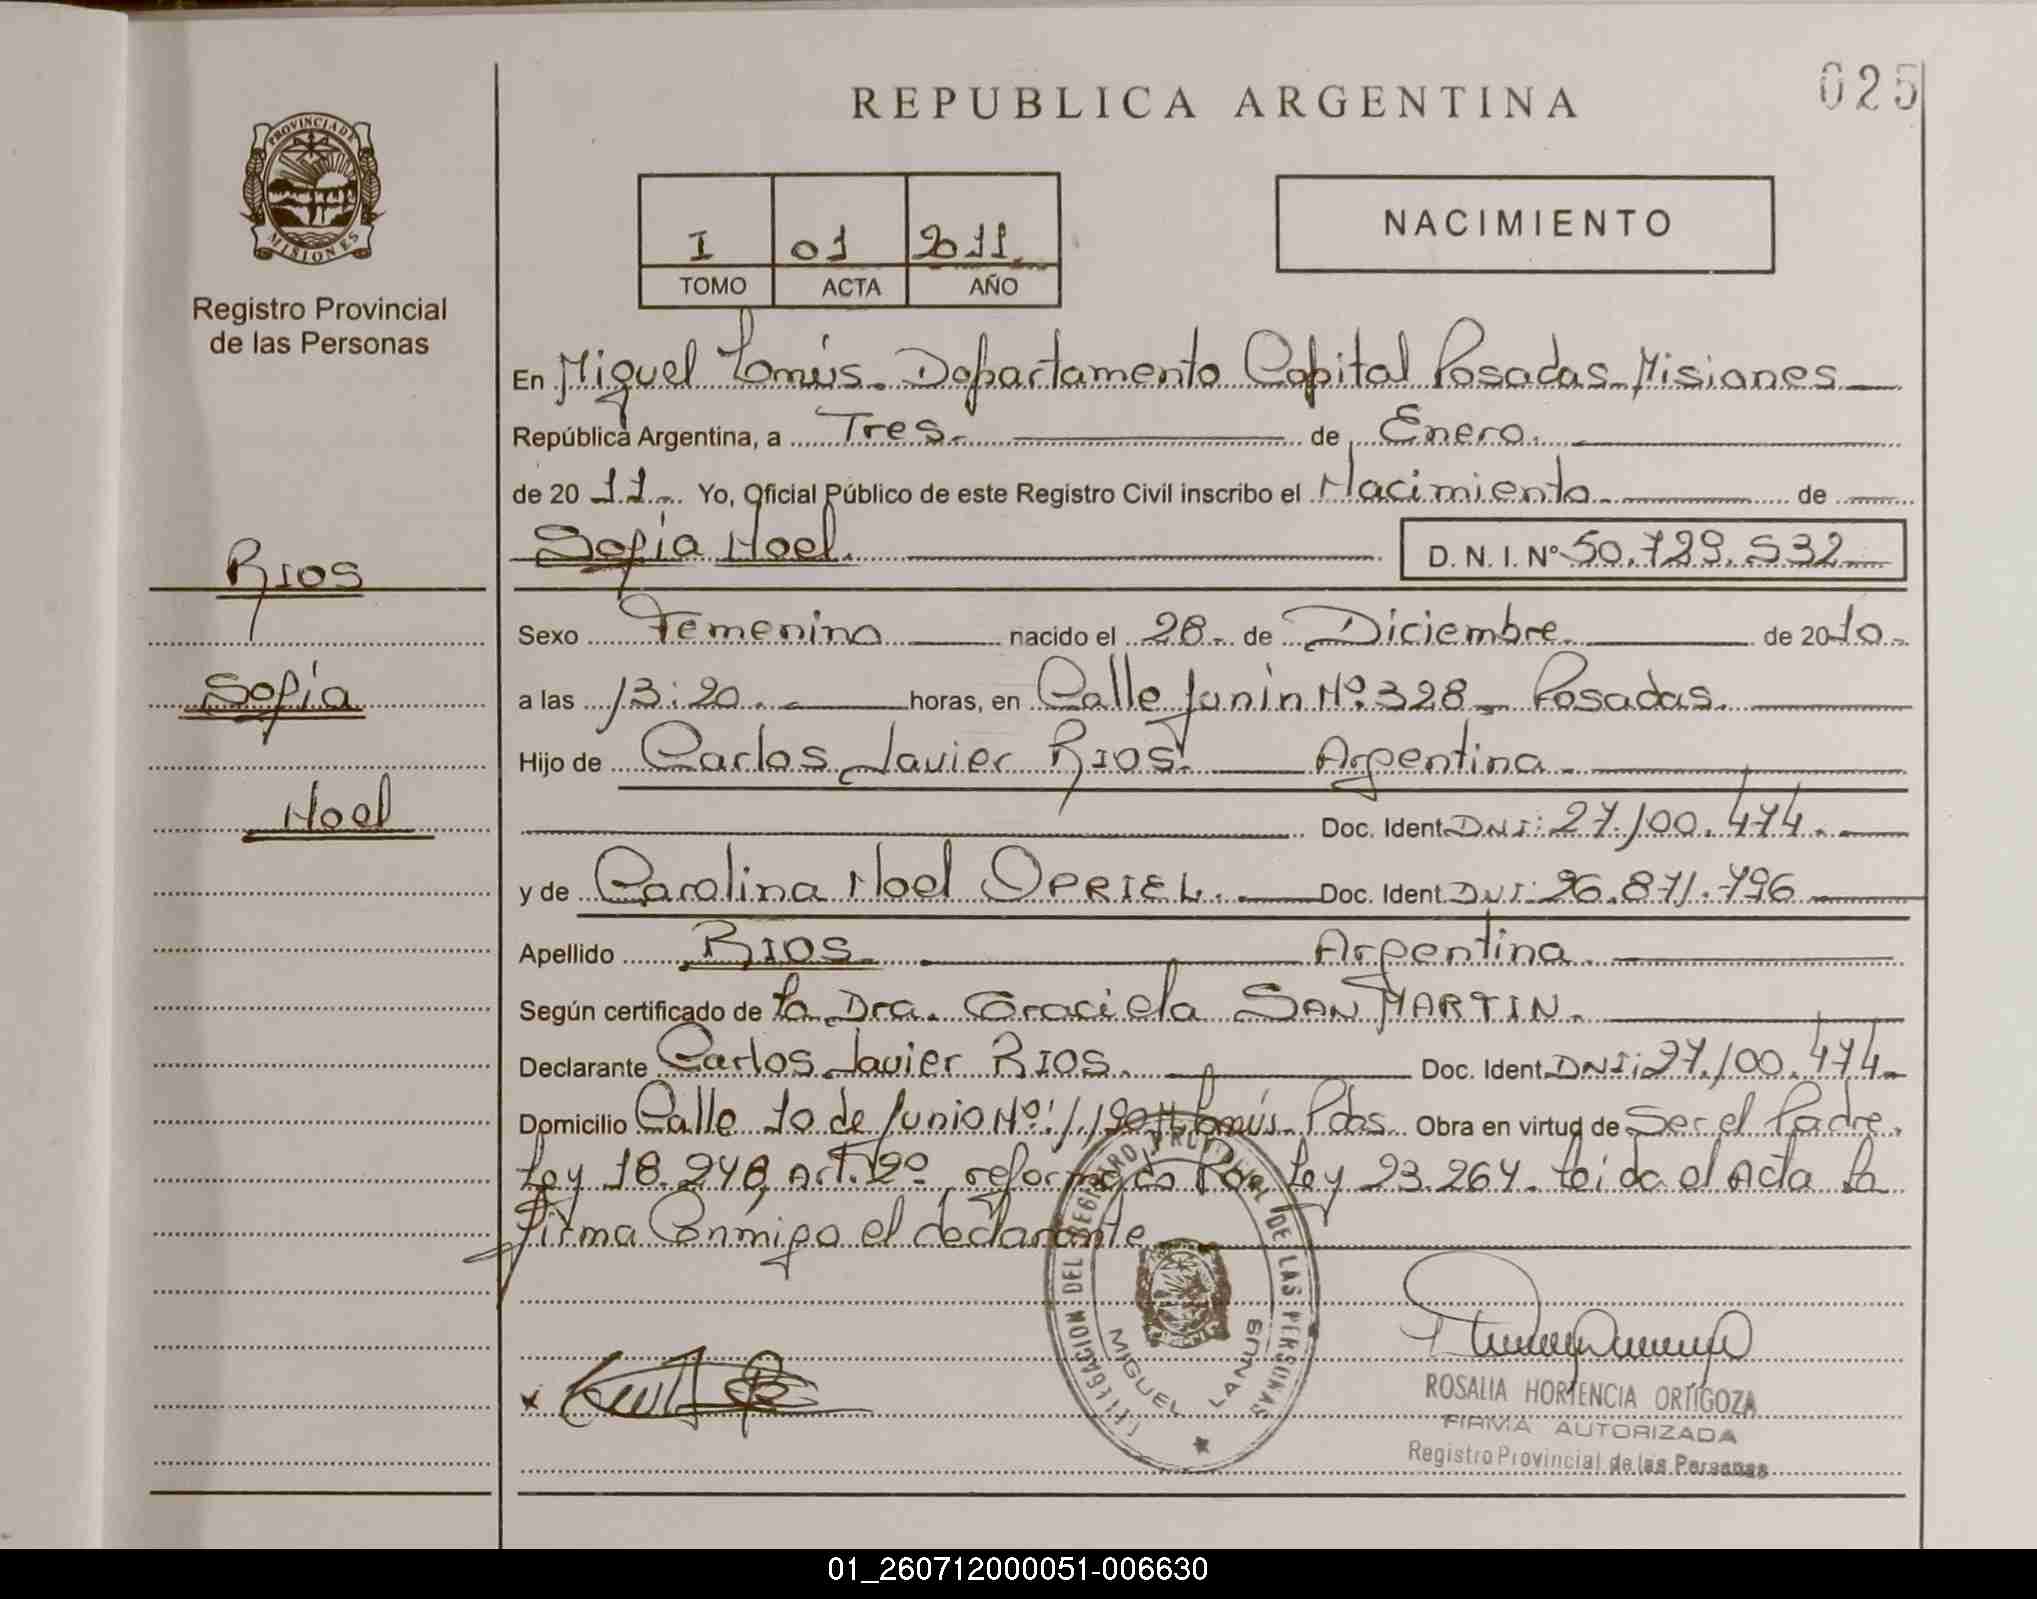 025
REPUBLICA ARGENTINA
PROVINCIA DE
MISIONES
Registro Provincial
de las Personas
I 01 2011
TOMO ACTA AÑO
NACIMIENTO
En Miguel Lanús. Departamento Capital Posadas Misiones
República Argentina, a Tres. de Enero.
de 20 11 Yo, Oficial Público de este Registro Civil inscribo el Nacimiento de
Sofía Noel. D. N. I. Nº 50.729.532
Rios
Sofía
Noel
Sexo Femenino nacido el 28 de Diciembre de 2010
a las 13:20 horas, en Calle Junin Nº 328 Posadas.
Hijo de Carlos Javier RIOS. Argentina
Doc. Ident DNI: 27.100.474.
y de Carolina Noel OPRIEL. Doc. Ident DNI: 26.871.796
Apellido RIOS Argentina
Según certificado de La Dra. Graciela SAN MARTIN.
Declarante Carlos Javier RIOS. Doc. Ident DNI: 27.100.474
Domicilio Calle 10 de Junio Nº: Lanús Pdas Obra en virtud de Ser el Padre.
Ley 18.248, Art. 2º reformada Por Ley 23.264. Leida el Acta la
firma Conmigo el declarante
DELEGACION DEL REGISTRO PROVINCIAL DE LAS PERSONAS
MIGUEL LANUS
ROSALIA HORTENCIA ORTIGOZA
FIRMA AUTORIZADA
Registro Provincial de las Personas
01_260712000051-006630